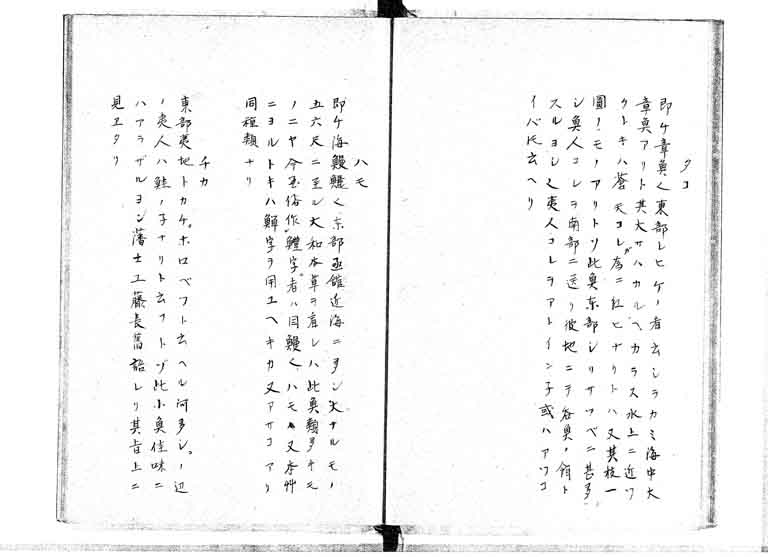 タコ
即チ章魚也東部レヒケノ者云シラカミ海中大
章魚アリト其大サハカルヘカラス水上ニ近ツ
クトキハ蒼天コレガ為ニ紅ヒナリトハ又其枝一
圍ノモノアリトゾ此魚東部シリサツベニ甚多
シ魚人コレヲ南部ニ送リ彼地ニテ谷魚ノ餌ト
スルヨシ也夷人コレヲアトイン子或ハアツコ
イバ氏云ヘリ
ハモ
即チ海鰻鱺也東部函館近海ニ多シ大ナルモノ
五六尺ニ至ル大和本草ヲ査レハ此魚類多キモ
ノニヤ今玉俗作鱧字者ハ同鰻也ハモ又本艸
ニヨルトキハ鱓字ヲ用ユヘキカ又アサコアリ
同種類ナリ
チカ
東部夷地トカケ。ホロベフト云ヘル河多シ。ノ辺
ノ夷人ハ鮭ノ子ナリト云フトゾ此小魚佳味ニ
ハアラザルヨシ藩士工藤長 語レリ其旨上ニ
見エタリ